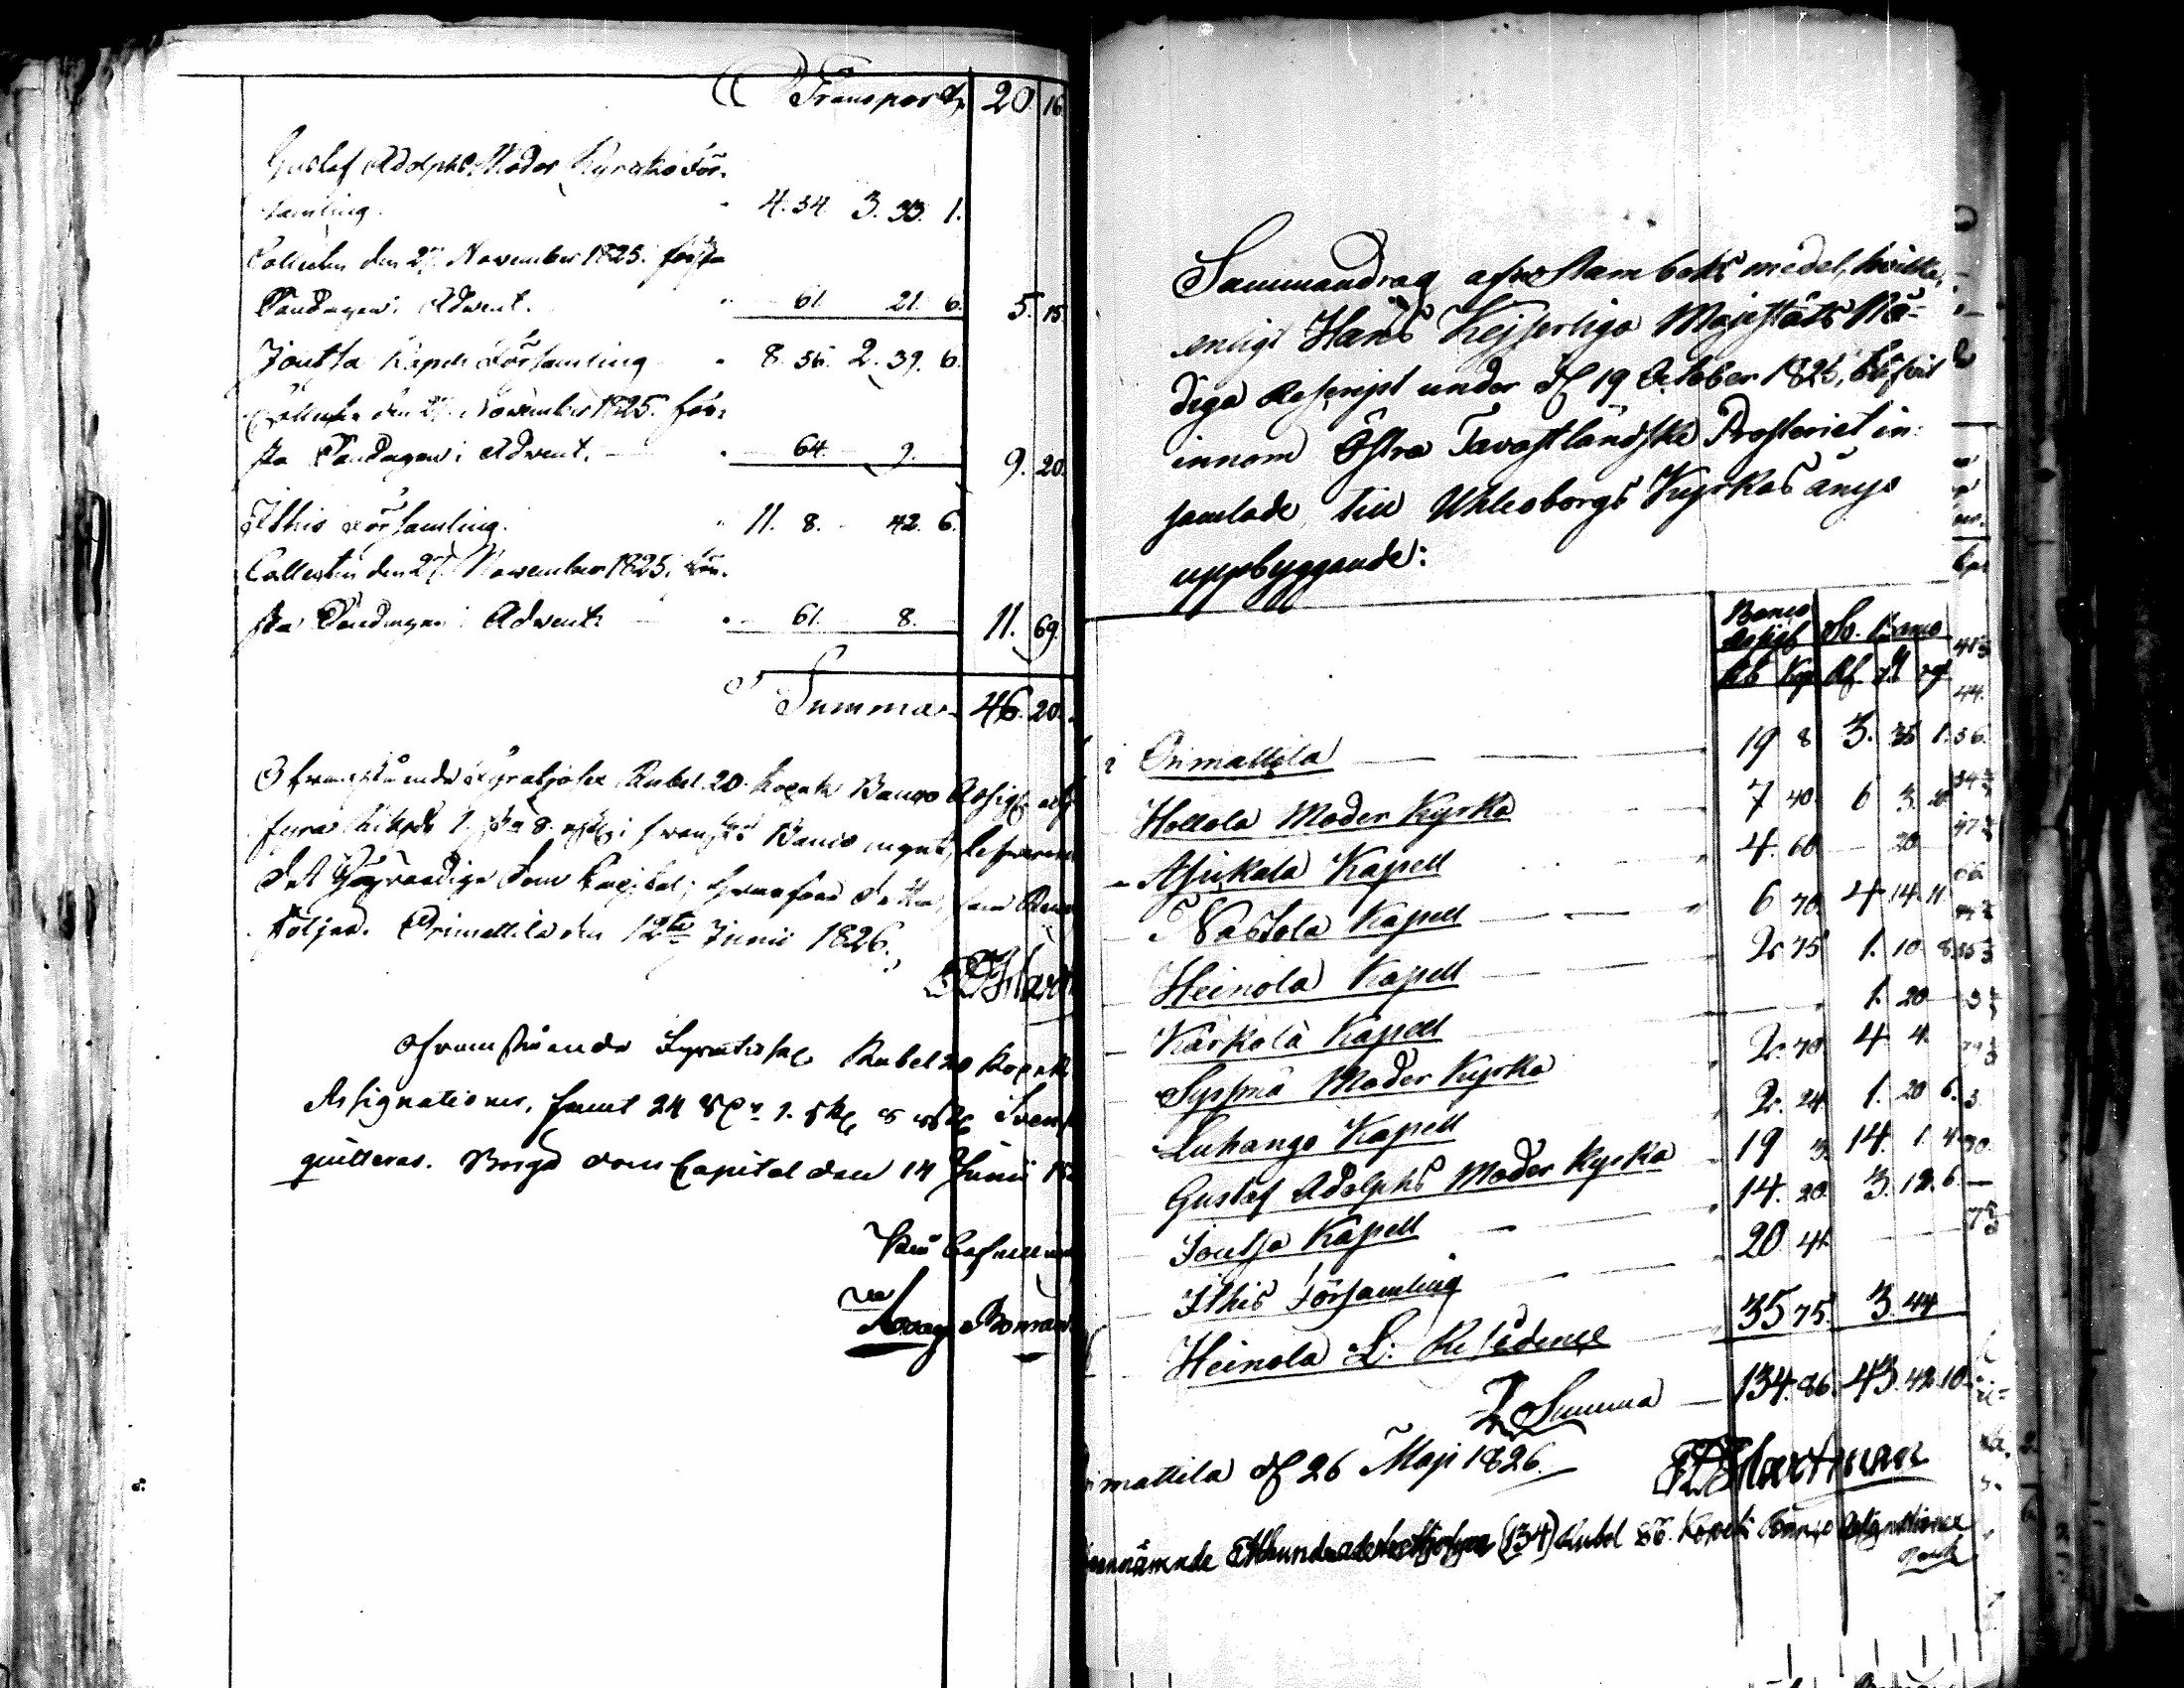 Transport 20. 16.
Gustaf Adolphs Moder Kyrcko För-
samling. 4. 54. 3. 33. 1.
Collecten den 27. November 1825. första
Sondagen i Advent. 61. 21. 6. 5. 15
Joutsa Kapell Församling 8. 56. 2. 39. 6.
Collecten den 27. November 1825. förs-
ta Sondagen i Advent. 64. 9. 20.
Ithis Församling. 11. 8. 42. 6.
Collecten den 27. November 1825. förs-
ta Sondagen i Advent 61. 8. 11. 69.
Summa 46. 20.
Ofwanstående Fyratijosex Rubel 20. Kopek Banco Assig
fyra Riksd 1. sk 8. i swenskt Banco mynt,
Det Högvördige Dom Capitel;
följer. Orimattila den 12te Junii 1826.
Ofwanstående Fyratiosex Rubel 20 Kopek
Assignationer, samt 24 1. sk 8 Svensk
quitteras. Borgå dom Capitel den 14 Junii
Sammandrag af Stamboks medel, hvilka,
enligt Hans Kejserliga Majestäts Nå-
diga Rescript under d 19 October 1825, blifvit
innom Östra Tavastländska Prosteriet in-
samlade till Uhleoborgs Kyrkas ånyo
uppbyggande:
Banco Assig Sv. Banco
Rb Kop Rd
i Orimattila 19 8 3. 35 1.
Hollola Moder Kyrka 7 40. 6 3.
Asikala Kapell 4. 60 20
Nastola Kapell 6 70. 4 14. 11
Heinola Kapell 2. 75 1. 10. 8
Kärkölä Kapell 1. 20
Sysmä Moder Kyrka 2. 70 4. 4.
Luhango Kapell 2. 24. 1. 20 6.
Gustaf Adolphs Moder Kyrka 19 3. 14. 1. 4
Joutsa Kapell 14. 20. 3. 12. 6.
Ithis Församling 20. 41.
Heinola L: Residence 35 75. 3. 44
Summa 134. 86. 43. 42. 10
mattila d 26 Maji 1826.
Hartman
(134) Rubel 86. Kopek Banco Assignationer